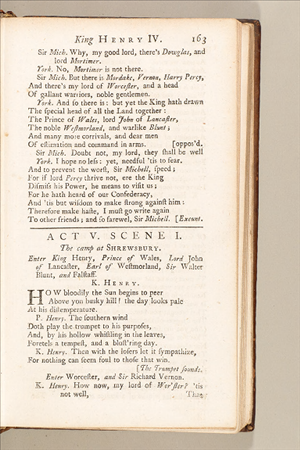 King HENRY IV. 163
Sir Mich. Why, my good lord, there's Douglas, and
lord Mortimer.
York. No, Mortimer is not there.
Sir Mich. But there is Mordake, Vernon, Harry Percy,
And there's my lord of Worcester, and a head
Of gallant warriors, noble gentlemen.
York. And so there is: but yet the King hath drawn
The special head of all the Land together:
The Prince of Wales, lord John of Lancaster,
The noble Westmorland, and warlike Blunt;
And many more corrivals, and dear men
Of estimation and command in arms. [oppos'd.
Sir Mich. Doubt not, my lord, they shall be well
York. I hope no less: yet, needful 'tis to fear.
And to prevent the worst, Sir Michell, speed;
For if lord Percy thrive not, ere the King
Dismiss his Power, he means to visit us;
For he hath heard of our Confederacy,
And 'tis but wisdom to make strong against him:
Therefore make haste, I must go write again
To other friends; and so farewel, Sir Michell. [Exeunt.
ACT V. SCENE I.
The camp at SHREWSBURY.
Enter King Henry, Prince of Wales, Lord John
of Lancaster, Earl of Westmorland, Sir Walter
Blunt, and Falstaff.
K. HENRY.
HOW bloodily the Sun begins to peer
Above yon busky hill! the day looks pale
At his distemperature.
P. Henry. The southern wind
Doth play the trumpet to his purposes,
And, by his hollow whistling in the leaves,
Foretels a tempest, and a blust'ring day.
K. Henry. Then with the losers let it sympathize,
For nothing can seem foul to those that win.
[The Trumpet sounds.
Enter Worcester, and Sir Richard Vernon.
K. Henry. How now, my lord of Wor'ster? 'tis
not well, That